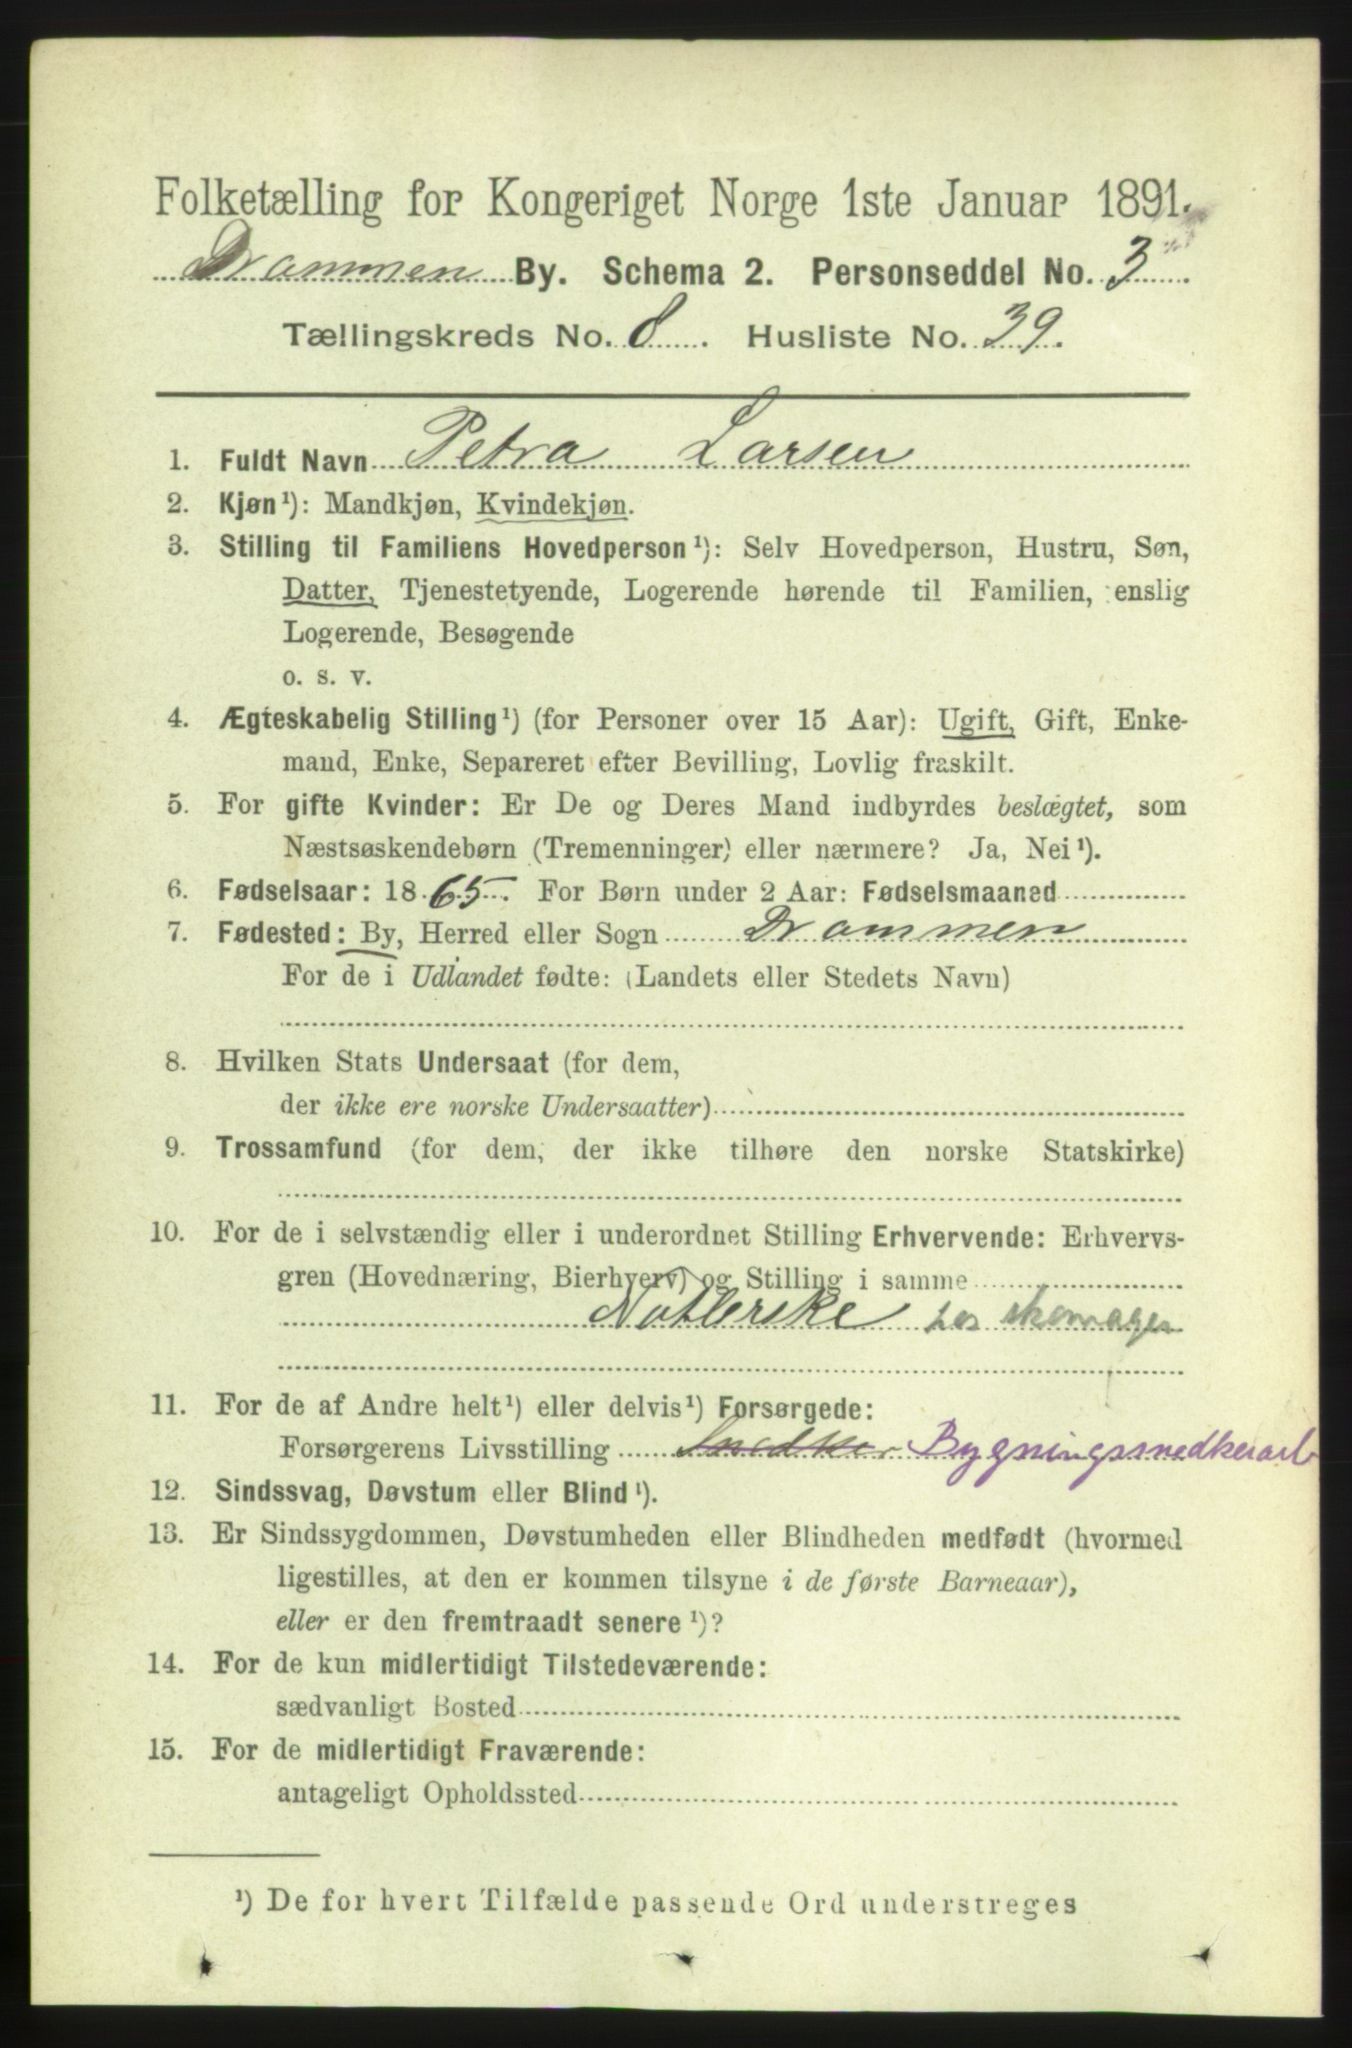 Folketælling for Kongeriget Norge 1ste Januar 1891.
Drammen By. Schema 2. Personseddel No. 3
Tællingskreds No. 8. Husliste No. 39.
1. Fuldt Navn Petra Larsen
2. Kjøn¹): Mandkjøn, Kvindekjøn.
3. Stilling til Familiens Hovedperson¹): Selv Hovedperson, Hustru, Søn,
Datter, Tjenestetyende, Logerende hørende til Familien, enslig
Logerende, Besøgende
o. s. v.
4. Ægteskabelig Stilling¹) (for Personer over 15 Aar): Ugift, Gift, Enke-
mand, Enke, Separeret efter Bevilling, Lovlig fraskilt.
5. For gifte Kvinder: Er De og Deres Mand indbyrdes beslægtet, som
Næstsøskendebørn (Tremenninger) eller nærmere? Ja, Nei¹).
6. Fødselsaar: 1865. For Børn under 2 Aar: Fødselsmaaned
7. Fødested: By, Herred eller Sogn Drammen
For de i Udlandet fødte: (Landets eller Stedets Navn)
8. Hvilken Stats Undersaat (for dem,
der ikke ere norske Undersaatter)
9. Trossamfund (for dem, der ikke tilhøre den norske Statskirke)
10. For de i selvstændig eller i underordnet Stilling Erhvervende: Erhvervs-
gren (Hovednæring, Bierhverv) og Stilling i samme
Natlerske hos skomager
11. For de af Andre helt¹) eller delvis¹) Forsørgede:
Forsørgerens Livsstilling Snedker Bygningssnedkerarb
12. Sindssvag, Døvstum eller Blind¹).
13. Er Sindssygdommen, Døvstumheden eller Blindheden medfødt (hvormed
ligestilles, at den er kommen tilsyne i de første Barneaar),
eller er den fremtraadt senere¹)?
14. For de kun midlertidigt Tilstedeværende:
sædvanligt Bosted
15. For de midlertidigt Fraværende:
antageligt Opholdssted
¹) De for hvert Tilfælde passende Ord understreges